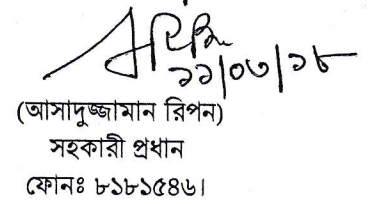 ১১/০৩/১৮
(আসাদুজ্জামান রিপন)
সহকারী প্রধান
ফোনঃ ৮১৮১৫৪৬।